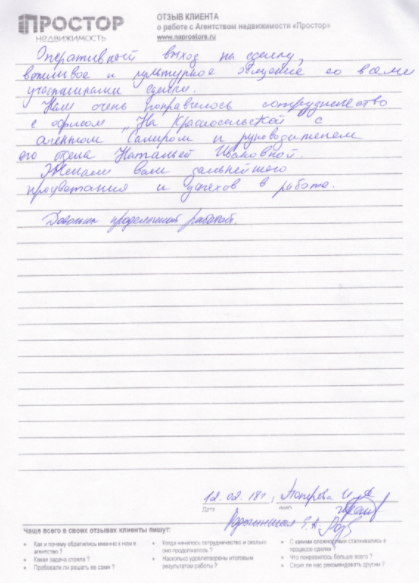 ПРОСТОР
НЕДВИЖИМОСТЬ
ОТЗЫВ КЛИЕНТА
о работе с Агентством недвижимости «Простор»
www.naprostore.ru
Оперативный выход на сделку,
вежливое и культурное общение со всеми
участниками сделки.
Нам очень понравилось сотрудничество
с офисом "На Красносельской" с
агентом и руководителем
его отдела Натальей Ивановной.
Желаем вам дальнейшего
процветания и успехов в работе.
Довольны проделанной работой.
12.02.18г.
Дата
Чаще всего в своих отзывах клиенты пишут:
• Как и почему обратились именно к нам в агентство ?
• Какая задача стояла ?
• Пробовали ли решать ее сами ?
• Когда началось сотрудничество и сколько оно продолжалось ?
• Насколько удовлетворены итоговым результатом работы ?
• С какими сложностями сталкивались в процессе сделки ?
• Что понравилось больше всего ?
• Стоит ли нас рекомендовать другим ?